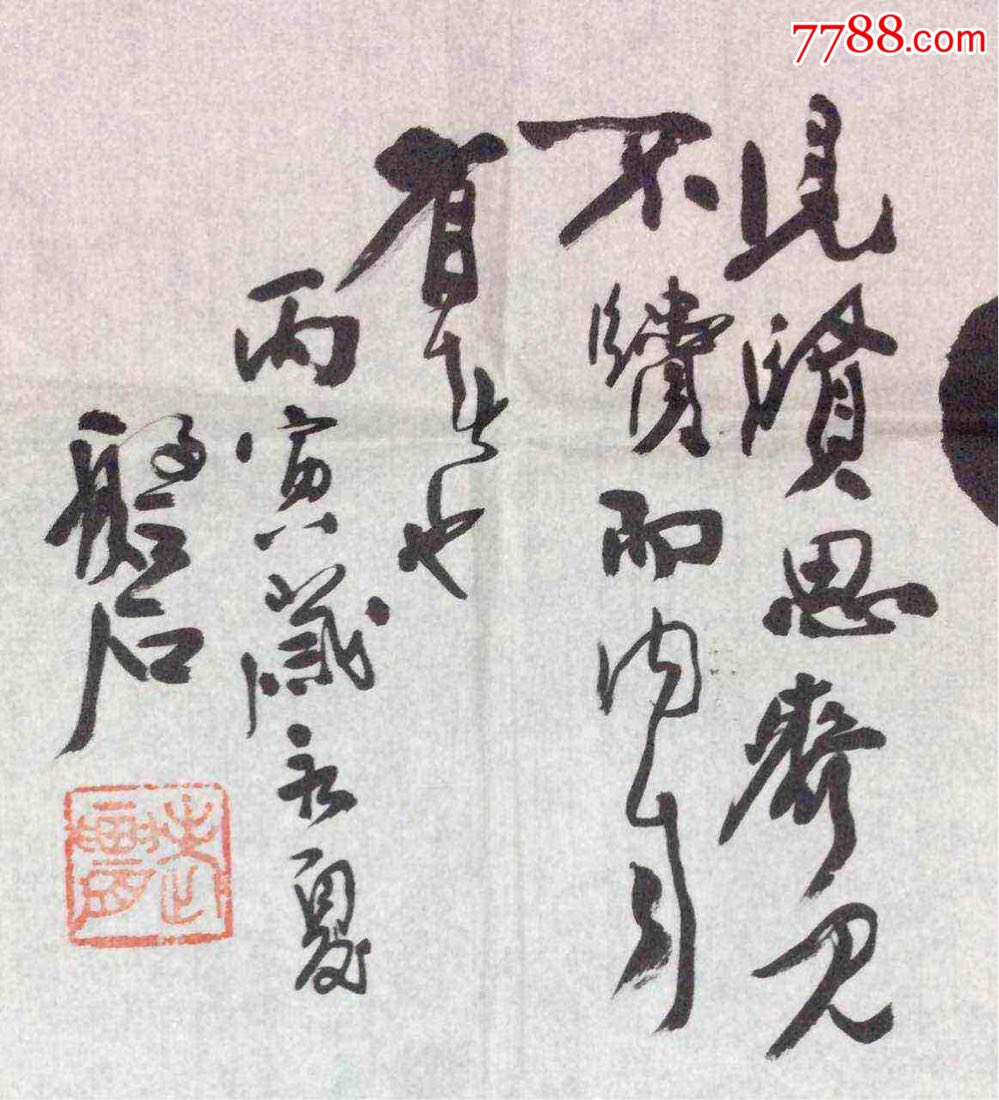 7788.com
見賢思齊見
不賢而內自
省也
丙寅歲夏
磐石